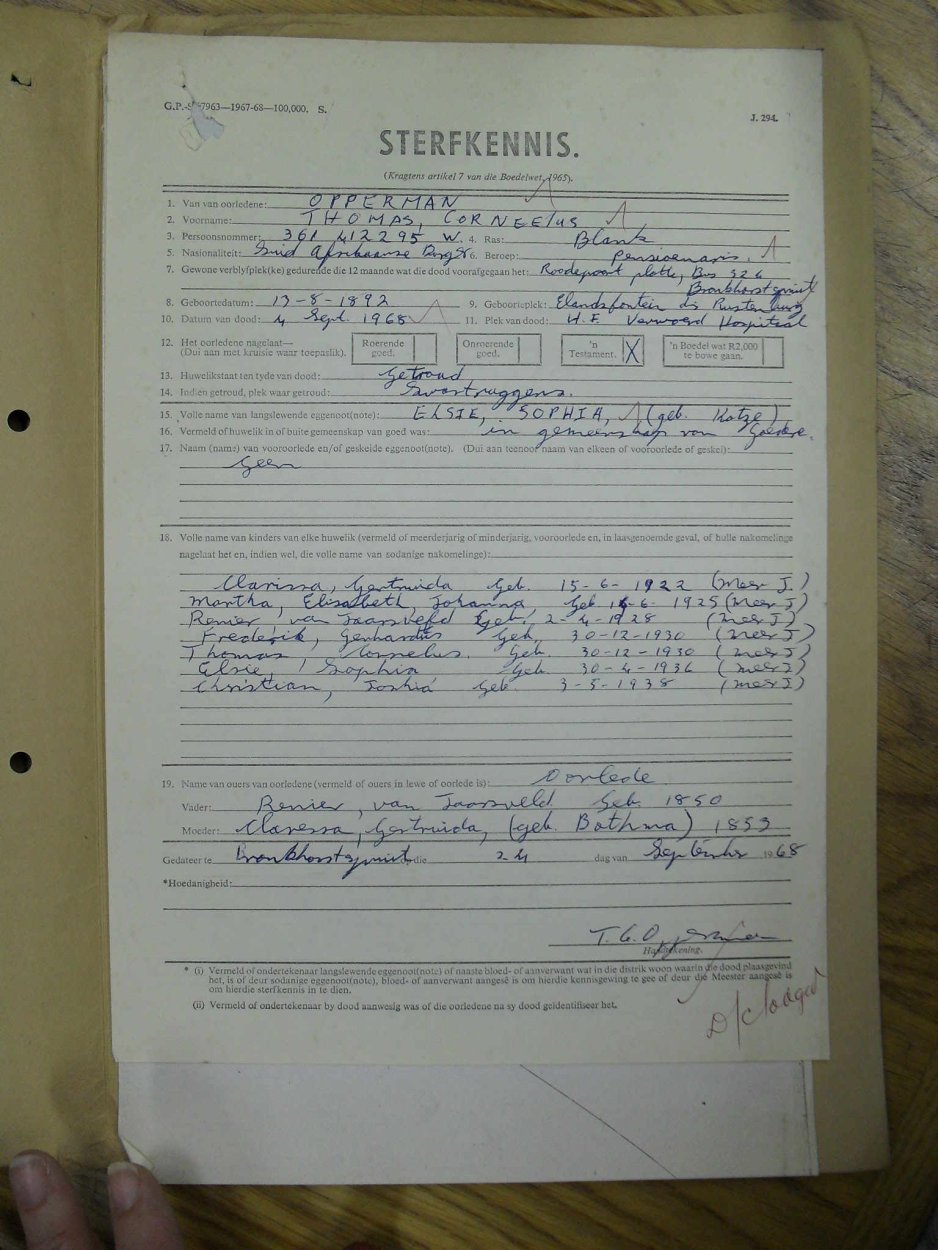 G.P.-S 7963—1967-68—100,000. S.
J. 294.
STERFKENNIS.
(Kragtens artikel 7 van die Boedelwet, 1965).
1. Van van oorledene: OPPERMAN
2. Voorname: THOMAS, CORNEELUS
3. Persoonsnommer: 361 412295 W. 4. Ras: Blank
5. Nasionaliteit: Suid Afrikaanse Burger 6. Beroep: Pensioenaris.
7. Gewone verblyfplek(ke) gedurende die 12 maande wat die dood voorafgegaan het: Roodepoort plotte, Bus 526
Bronkhorstspruit
8. Geboortedatum: 13-8-1892 9. Geboorteplek: Elandsfontein dis Rustenburg
10. Datum van dood: 4 Sept. 1968 11. Plek van dood: H.F. Verwoerd Hospitaal
12. Het oorledene nagelaat—
(Dui aan met kruisie waar toepaslik).
Roerende goed.
Onroerende goed.
'n Testament. X
'n Boedel wat R2,000 te bowe gaan.
13. Huwelikstaat ten tyde van dood: Getroud
14. Indien getroud, plek waar getroud: Swartruggens.
15. Volle name van langslewende eggenoot(note): ELSIE, SOPHIA, (geb. Kotze)
16. Vermeld of huwelik in of buite gemeenskap van goed was: in gemeenskap van Goedere.
17. Naam (name) van vooroorlede en/of geskeide eggenoot(note). (Dui aan teenoor naam van elkeen of vooroorlede of geskei):
Geen
18. Volle name van kinders van elke huwelik (vermeld of meerderjarig of minderjarig, vooroorlede en, in laasgenoemde geval, of hulle nakomelinge
nagelaat het en, indien wel, die volle name van sodanige nakomelinge):
Clarissa, Gertruida Geb. 15-6-1922 (Meer J.)
Martha, Elisabeth, Johanna, Geb 16-6-1925 (Meer J)
Renier van Jaarsveld Geb. 2-4-1928 (Meer J)
Frederik, Genhardus Geb. 30-12-1930 (Meer J)
Thomas Cornelius. Geb. 30-12-1930 (Meer J)
Elsie, Sophia Geb. 30-4-1936 (Meer J)
Christian, Joshia Geb 3-5-1938 (Meer J)
19. Name van ouers van oorledene (vermeld of ouers in lewe of oorlede is): Oorlede
Vader: Renier, van Jaarsveld Geb. 1850
Moeder: Claressa, Gertruida, (geb. Bothma) 1853
Gedateer te Bronkhorstspruit op die 24 dag van September 1968
*Hoedanigheid:
T. C. Opperman
Handtekening.
* (i) Vermeld of ondertekenaar langslewende eggenoot(note) of naaste bloed- of aanverwant wat in die distrik woon waarin die dood plaasgevind
het, is of deur sodanige eggenoot(note), bloed- of aanverwant aangesê is om hierdie kennisgewing te gee of deur die Meester aangesê is
om hierdie sterfkennis in te dien.
(ii) Vermeld of ondertekenaar by dood aanwesig was of die oorledene na sy dood geïdentifiseer het.
D/c lodged